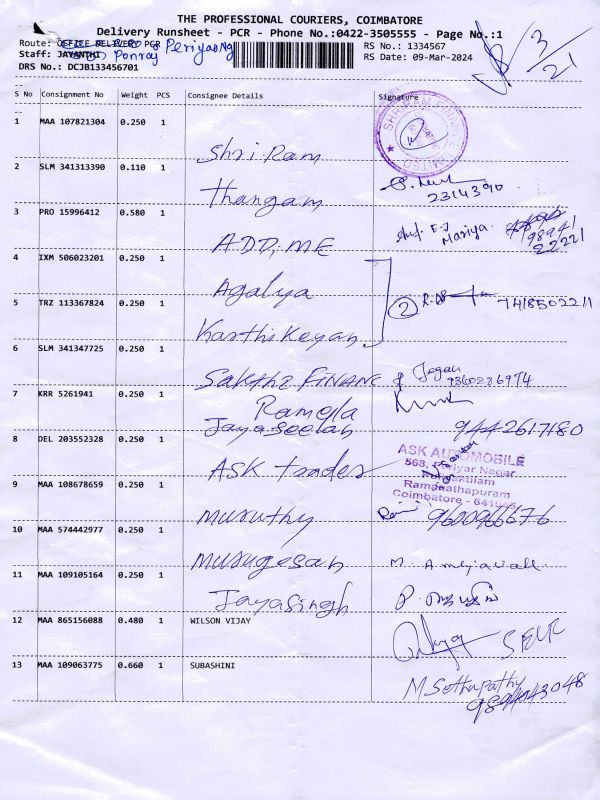 THE PROFESSIONAL COURIERS, COIMBATORE
Delivery Runsheet - PCR - Phone No.:0422-3505555 - Page No.:1
Route: OFFICE DELIVERY PCR Periyasamy
RS No: 1334567
Staff: JAYANTHI Ponraj
RS Date: 09-Mar-2024
DRS No: DCJB133456701
S No Consignment No Weight PCS Consignee Details Signature
1 MAA 107821304 0.250 1 Shri.Ram
2 SLM 341313390 0.110 1 Thangam 2314390
3 PRO 15996412 0.580 1 ADD, ME E.J Mariya 98941 22221
4 IXM 506023201 0.250 1 Agalya
5 TRZ 113367824 0.250 1 Karthikeyan 2 7418502211
6 SLM 341347725 0.250 1 Sakthi FINANC Jegan 9360286974
7 KRR 5261941 0.250 1 Ramela Jayaseelan 9442617180
8 DEL 203552328 0.250 1 ASK trades
ASK AUTOMOBILE
Ramanathapuram
9 MAA 108678659 0.250 1 Muruthy 9600966676
10 MAA 574442977 0.250 1 Murugesan
11 MAA 109105164 0.250 1 Jayasingh
12 MAA 865156088 0.480 1 WILSON VIJAY SELF
13 MAA 109063775 0.660 1 SUBASHINI M Sethupathy 9894043048